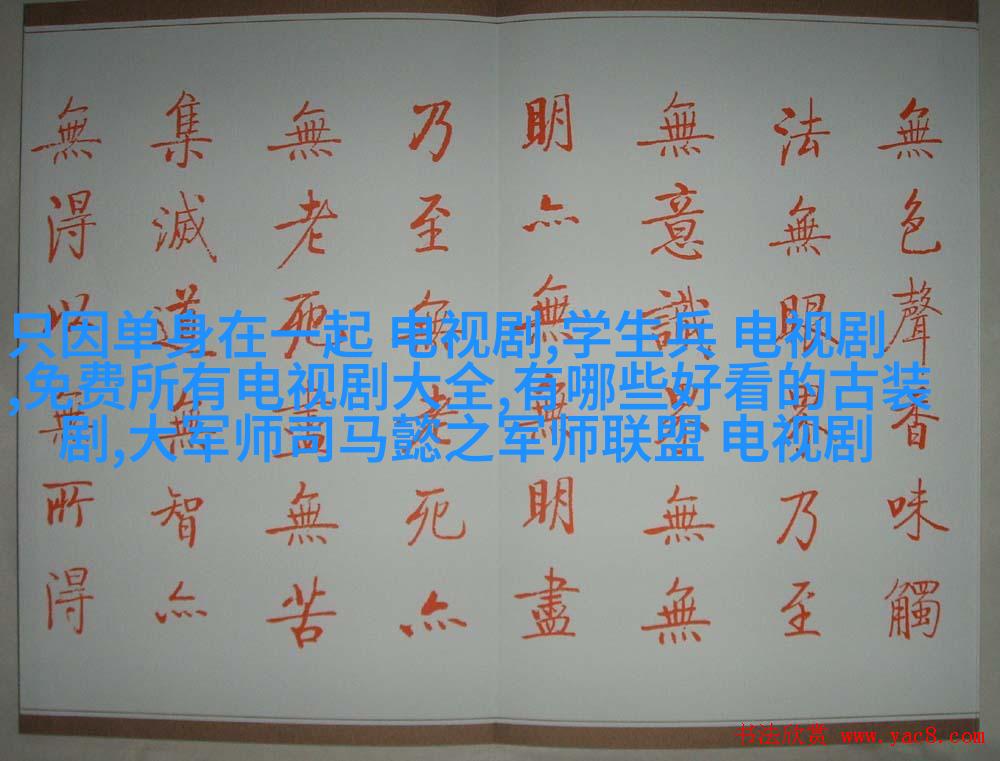 無色聲香味觸
法無眼界乃至
無意識界無無
明亦無無明盡
乃至無老死亦
無老死盡無苦
集滅道無智亦
無得以無所得
只因单身在一起 电视剧,学生兵 电视剧
,免费所有电视剧大全,有哪些好看的古装
剧,大军师司马懿之军师联盟 电视剧
书法欣赏 www.yac8.com